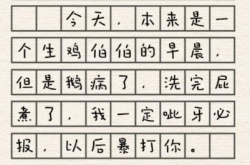 今天，本来是一
个生鸡伯伯的早晨，
但是鹅病了，洗完屁
煮了，我一定呲牙必
报，以后暴打你。